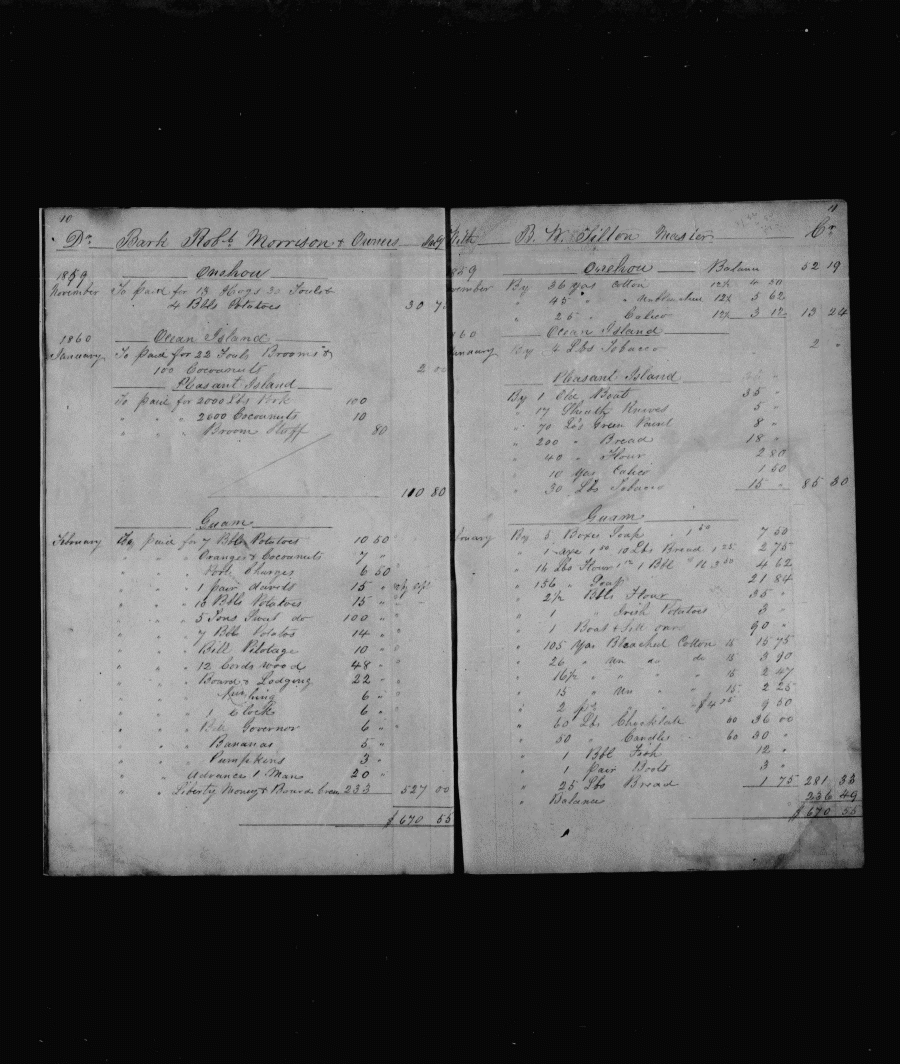 10
Dr. Bark Robt. Morrison & Owners
1859 Oneehou
November To paid for 13 Hogs 20 Fouls
" 4 Bbls Potatoes 30 75
1860 Ocean Island
January To paid for 22 Fouls Brooms &
100 Cocoanuts 2 00
Pleasant Island
To paid for 2000 Lbs Pork 100
" " " 2000 Cocoanuts 10
" " " Broom Stuff 80
110 80
Guam
February To paid for 7 Bbls Potatoes 10 50
" " " Oranges & Cocoanuts 7 "
" " " Port Charges 6 50
" " " 1 pair davits 15 "
" " " 10 Bbls Potatoes 15 "
" " " 5 Tons Sweet do 100 "
" " " 7 Bbls Potatos 14 "
" " " Bill Pilotage 10 "
" " " 12 Cords wood 48 "
" " " Board & Lodging 22 "
" " " 6 "
" " " 1 Clock 6 "
" " " Bill Governor 6 "
" " " Bananas 5 "
" " " Pumpkins 3 "
" " Advance 1 Man 20 "
" " Liberty Money & Board 233 527 00
$ 670 55
11
With B. W. Tilton Master Cr.
1859 Oneehou Balance 52 19
November By 36 yds Cotton 12½ 4 50
" 45 " " Unbleached 12½ 5 62
" 25 " Calico 12½ 3 12 13 24
1860 Ocean Island
January By 4 Lbs Tobacco 2 "
Pleasant Island
By 1 Old Boat 35 "
" 17 Sheath Knives 5 "
" 70 Lbs Green Paint 8 "
" 200 " Bread 18 "
" 40 " Flour 2 80
" 10 yds Calico 1 50
" 30 Lbs Tobacco 15 " 85 30
Guam
February By 5 Boxes Soap 1 50 7 50
" 1 axe 1 50 10 Lbs Bread 1 25 2 75
" 14 Lbs Flour 1 12 1 Bbl " 3 50 4 62
" 156 " Soap 21 84
" 2½ Bbls Flour 35 "
" 1 " Irish Potatoes 3 "
" 1 Boat & Sett oars 90 "
" 105 yds Bleached Cotton 15 15 75
" 26 " Un " do 15 3 90
" 16½ " " " " 15 2 47
" 15 " Un " " 15 2 25
" 2 ps " " $4 75 9 50
" 60 Lbs Chocolate 60 36 00
" 50 " Candles 60 30 "
" 1 Bbl Fish 12 "
" 1 pair Boots 3 "
" 25 Lbs Bread 1 75 281 33
" Balances 236 49
$ 670 55